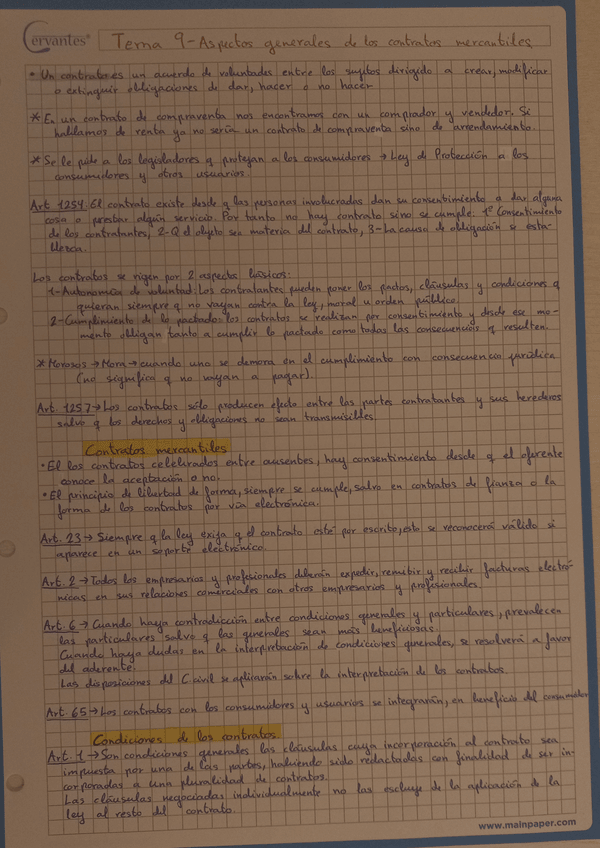 Cervantes®
Tema 9 - Aspectos generales de los contratos mercantiles
• Un contrato es un acuerdo de voluntades entre los sujetos dirigido a crear, modificar
o extinguir obligaciones de dar, hacer o no hacer
* En un contrato de compraventa nos encontramos con un comprador y vendedor. Si
hablamos de renta ya no sería un contrato de compraventa sino de arrendamiento.
* Se le pide a los legisladores q protejan a los consumidores → Ley de Protección a los
consumidores y otros usuarios.
Art 1254: El contrato existe desde q las personas involucradas dan su consentimiento a dar alguna
cosa o prestar algún servicio. Por tanto no hay contrato sino se cumple: 1º Consentimiento
de los contratantes, 2-Q el objeto sea materia del contrato, 3-La causa de obligación se esta-
blezca.
Los contratos se rigen por 2 aspectos básicos:
1-Autonomía de voluntad: Los contratantes pueden poner los pactos, cláusulas y condiciones q
quieran siempre q no vayan contra la ley, moral u orden público.
2-Cumplimiento de lo pactado: los contratos se realizan por consentimiento y desde ese mo-
mento obligan tanto a cumplir lo pactado como todas las consecuencias q resulten.
* Morosos → Mora → cuando uno se demora en el cumplimiento con consecuencia jurídica
(no significa q no vayan a pagar).
Art. 1257 → Los contratos sólo producen efecto entre las partes contratantes y sus herederos
salvo q los derechos y obligaciones no sean transmisibles.
Contratos mercantiles
• El los contratos celebrados entre ausentes, hay consentimiento desde q el oferente
conoce la aceptación o no.
• El principio de libertad de forma, siempre se cumple, salvo en contratos de fianza o la
forma de los contratos por vía electrónica.
Art. 23 → Siempre q la ley exija q el contrato esté por escrito, esto se reconocerá válido si
aparece en un soporte electrónico.
Art. 2 → Todos los empresarios y profesionales deberán expedir, remitir y recibir facturas electró-
nicas en sus relaciones comerciales con otros empresarios y profesionales
Art. 6 → Cuando haya contradicción entre condiciones generales y particulares, prevalecen
las particulares salvo q las generales sean más beneficiosas.
Cuando haya dudas en la interpretación de condiciones generales, se resolverá a favor
del aderente.
Las disposiciones del C civil se aplicarán sobre la interpretación de los contratos.
Art 65 → Los contratos con los consumidores y usuarios se integrarán, en beneficio del consumidor
Condiciones de los contratos
Art. 1 → Son condiciones generales las cláusulas cuya incorporación al contrato sea
impuesta por una de las partes, habiendo sido redactadas con finalidad de ser in-
corporadas a una pluralidad de contratos.
Las cláusulas negociadas individualmente no las excluye de la aplicación de la
ley al resto del contrato.
www.mainpaper.com